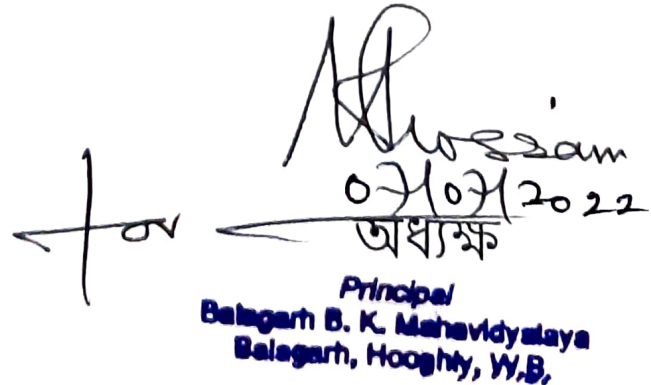 07/07/2022
অধ্যক্ষ
Principal
Balagarh B. K. Mahavidyalaya
Balagarh, Hooghly, W.B.